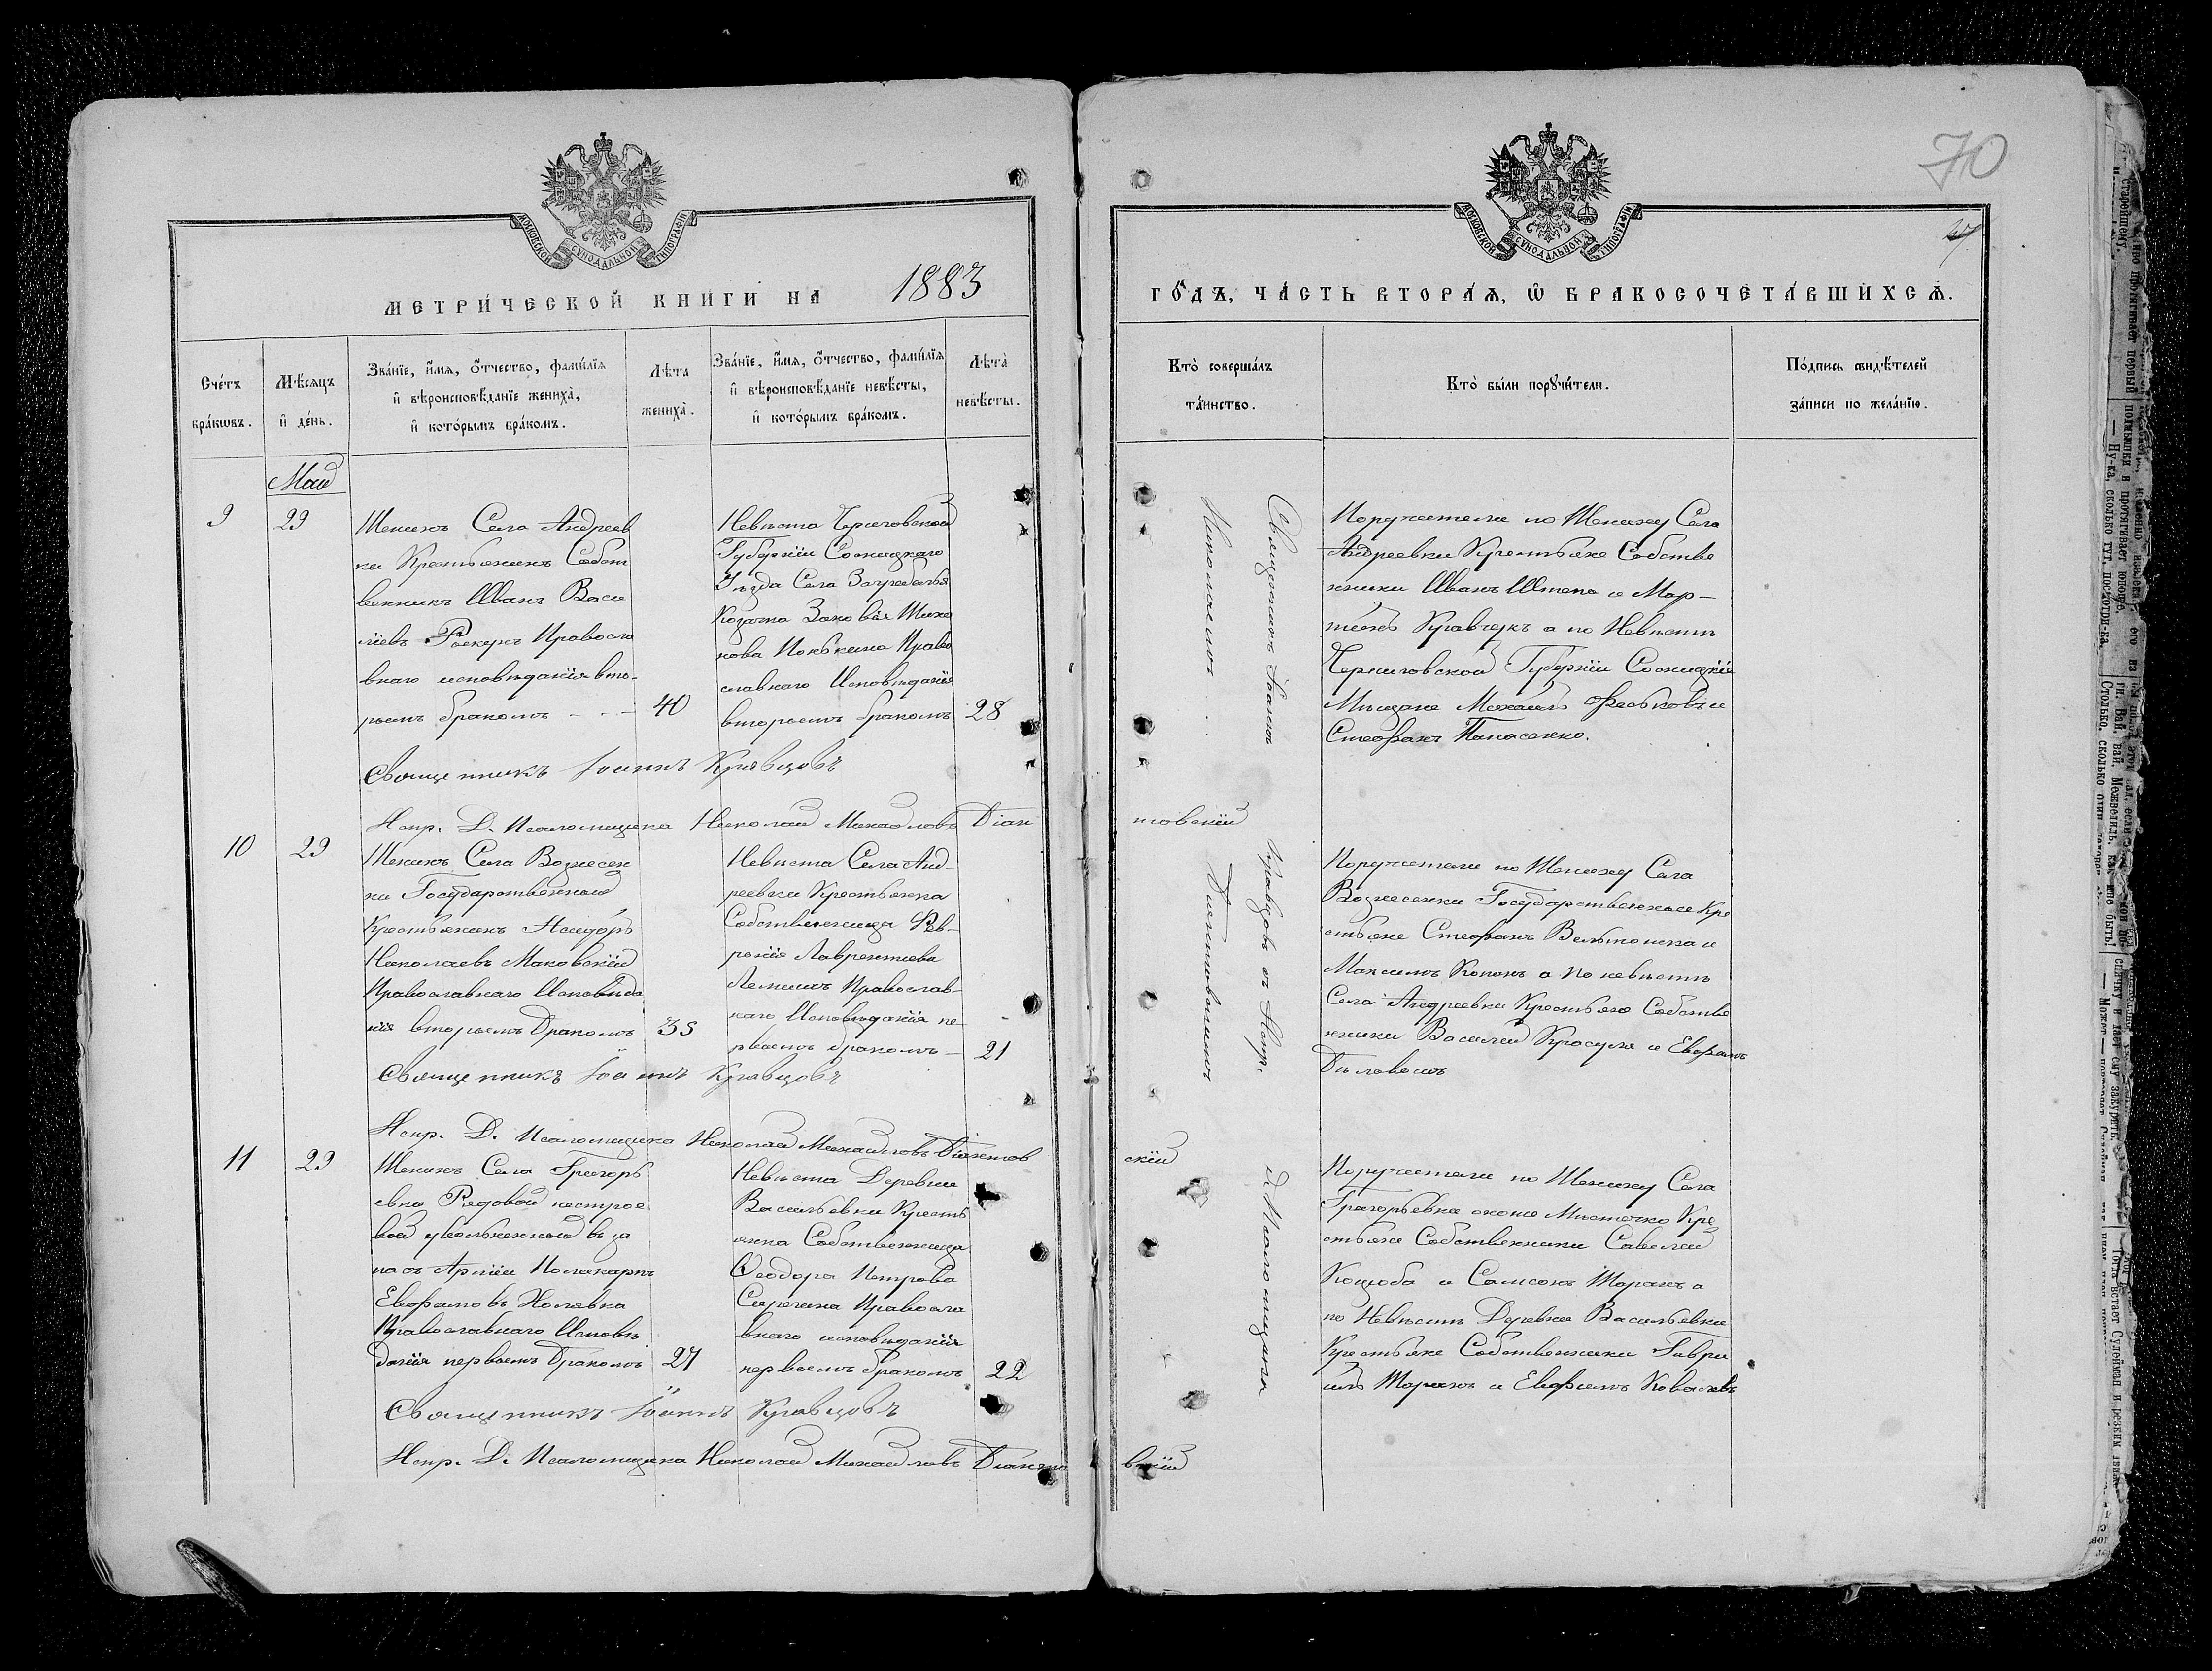 МОСКОВСКОЙ СѴНОДАЛЬНОЙ ТИПОГРАФІИ
МЕТРИ́ЧЕСКОЙ КНИ́ГИ НА 1883
Сче́тъ бра́кѡвъ.
Мѣ́сяцъ и҆ де́нь.
Зва́нїе, и҆́мя, ѻ҆́тчество, фами́лїя
и҆ вѣроисповѣ́данїе жениха̀,
и҆ кото́рымъ бра́комъ.
Лѣ́та жениха̀.
Зва́нїе, и҆́мя, ѻ҆́тчество, фами́лїя
и҆ вѣроисповѣ́данїе невѣ́сты,
и҆ кото́рымъ бра́комъ.
Лѣ́та невѣ́сты.
Май
9
29
Женихъ Села Андреев
ки Крестьянинъ Собст
венникъ Иванъ Васи
лiевъ
Правосла
внаго исповѣданiя вто-
рымъ бракомъ - - -
40
Невѣста Черниговской
Губернiи Сосницкаго
Уѣзда Села Загребелья
Козачка
Право
славнаго Исповѣданiя
вторымъ бракомъ
28
Священникъ Iоаннъ Кравцовъ
Испр. Д. Псаломщика Николай Михайловъ Дiан
товскiй
10
29
Женихъ Села Вознесен
ки Государственный
Крестьянинъ Исидоръ
Николаевъ Маковскiй
Православнаго Исповѣда
нiя вторымъ Бракомъ
35
Невѣста Села Анд-
реевки Крестьянка
Собственница Фев-
ронiя Лаврентiева
Лемишъ Православ-
наго Исповѣданiя пе-
рвымъ бракомъ -
21
Священникъ Iоаннъ Кравцовъ
Испр. Д. Псаломщика Николай Михайловъ Дiантов
скiй
11
29
Женихъ Села Григорь
евки Рядовой нестрое
вой уволенный въ за
пасъ Армiи Поликарпъ
Евфимовъ Холявка
Православнаго Исповѣ
данiя первымъ Бракомъ
27
Невѣста Деревни
Васильевки Кресть
янка Собственница
Ѳеодора Петрова
Православ
внаго исповѣданiя
первымъ бракомъ
22
Священникъ Iоаннъ Кравцовъ
Испр. Д. Псаломщика Николай Михайловъ Дiанто
вскiй
70
ГО́ДЪ, ЧА́СТЬ ВТОРА́Я, Ѡ҆ БРАКОСОЧЕТА́ВШИХСЯ.
Кто̀ соверша́лъ
та́инство.
Кто̀ бы́ли порꙋчи́тели.
По́дпись свидѣ́телей
за́писи по жела́нїю.
Священникъ Iоаннъ Кравцовъ съ Испр. Д. Псаломщика
Николаемъ Дiантовскимъ
Поручители по Жениху Села
Андреевки Крестьяне Собстве
нники Иванъ Штепа и Мар-
тинъ Кравчукъ а по Невѣстѣ
Черниговской Губернiи Сосницкiе
Мѣщане Михаилъ и
Стефанъ Панасенко.
Поручители по Жениху Села
Вознесенки Государственные Кре
стьяне Стефанъ и
Максимъ Кононъ а по невѣстѣ
Села Андреевки Крестьяне Собстве
нники Василiй Красуля и Евфимъ
Поручители по Жениху Села
Григорьевки Кре
стьяне Собственники Савелiй
Коцюба и Самсонъ Моранъ а
по Невѣстѣ Деревни Васильевки
Крестьяне Собственники Гаври
илъ и Евфимъ Ковалевъ